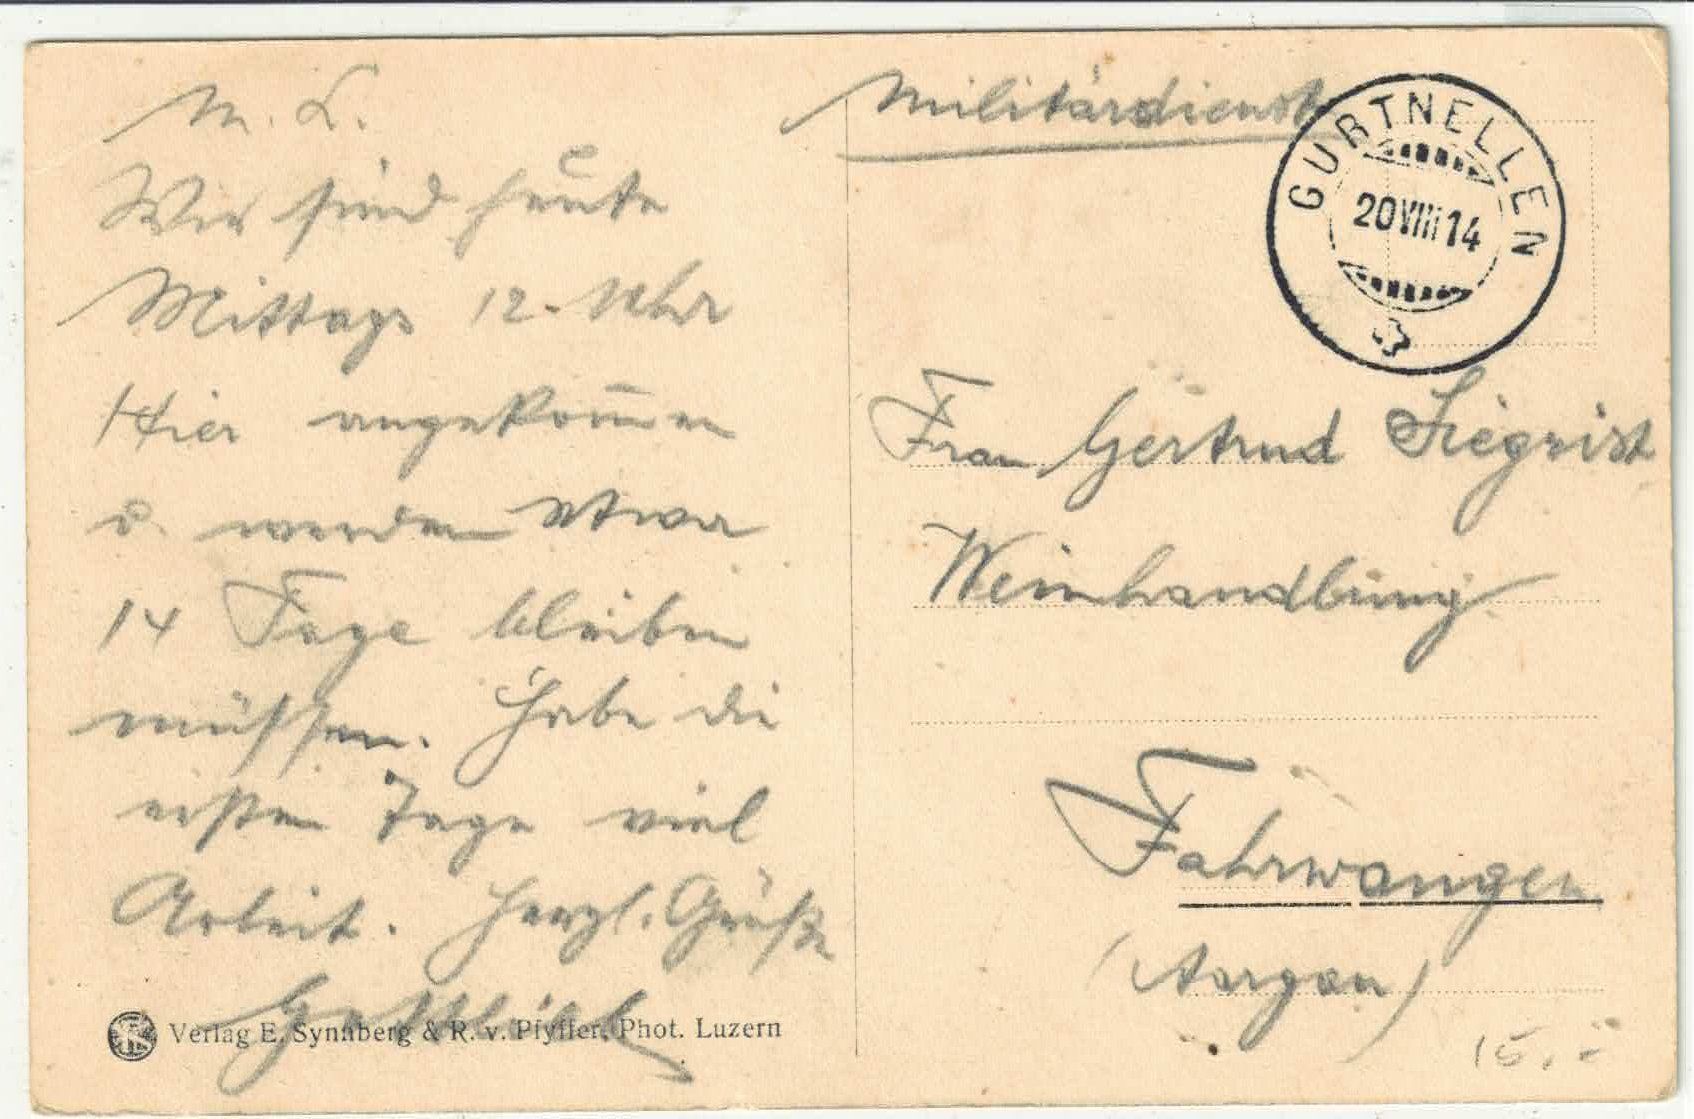 M. L.
Wir sind heute
Mittags 12. Uhr
Hier angekom̅en
u. werden etwa
14 Tage bleiben
müssen. Habe die
ersten Tage viel
Arbeit. Herzl. Grüße
Gottlieb
Verlag E. Synnberg & R. v. Pfyffer, Phot. Luzern
Militärdienst
GURTNELLEN
20 VIII 14
Frau Gertrud Siegrist
Weinhandlung
Fahrwangen
(Aargau)
15.-